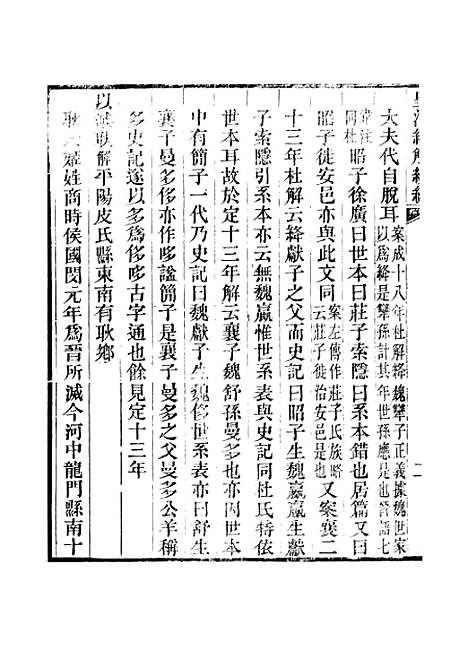 大夫代自脫耳案成十八年杜解絳魏犫子正義據魏世家
以爲絳是犫孫計其年世孫應是也晉語七
韋注
同杜昭子徐廣曰世本曰莊子索隱曰系本錯也居篇又曰
昭子徙安邑亦與此文同案左傳作莊子氏族略
云莊子徙治安邑是也又案襄二
十三年杜解云絳獻子之父而史記曰昭子生魏嬴嬴生獻
子索隱引系本亦云無魏嬴惟世系表與史記同杜氏特依
世本耳故於定十三年解云襄子魏舒孫曼多也又曰世本
中有簡子一代乃史記曰魏獻子生魏侈世系表亦曰舒生
襄子曼多侈亦作哆謚簡子是襄子曼多之父曼多公羊稱
多史記遂以多爲侈哆古字通也餘見定十三年
以滅耿解平陽皮氏縣東南有耿鄉
耿姬姓商時侯國閔元年爲晉所滅今河中龍門縣南十